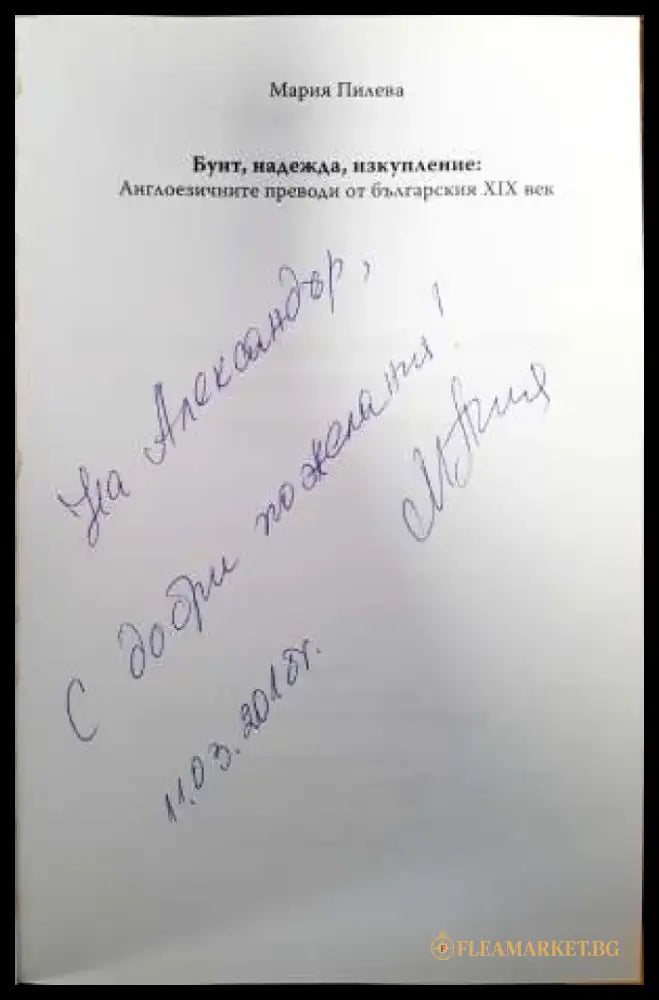 Мария Пилева
Бунт, надежда, изкупление:
Англоезичните преводи от българския XIX век
На Александър,
С добри пожелания!
Мария
11.03.2018г.
FLEAMARKET.BG